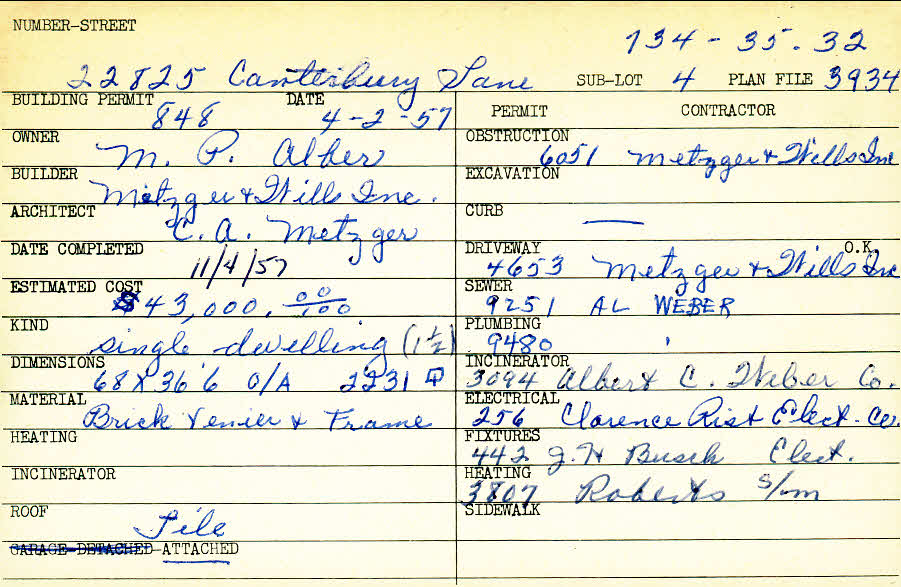 NUMBER-STREET
134-35.32
22825 Canterbury Lane SUB-LOT 4 PLAN FILE 3934
BUILDING PERMIT DATE
848 4-2-57
OWNER
M. P. Alber
BUILDER
Metzger & Wills Inc.
ARCHITECT
C. A. Metzger
DATE COMPLETED
11/4/57
ESTIMATED COST
$43,000. 00/100
KIND
single dwelling (1 1/2)
DIMENSIONS
68 X 36'6 O/A 2231
MATERIAL
Brick Venier & Frame
HEATING
INCINERATOR
ROOF
Tile
GARAGE-DETACHED-ATTACHED
PERMIT CONTRACTOR
OBSTRUCTION
6051 Metzger & Wills Inc
EXCAVATION
CURB
—
DRIVEWAY O.K.
4653 Metzger & Wills Inc
SEWER
9251 AL WEBER
PLUMBING
9480 '
INCINERATOR
3094 Albert C. Weber Co.
ELECTRICAL
256 Clarence Rist Elect.
FIXTURES
442 J. H Busch Elect.
HEATING
3807 Roberts S/m
SIDEWALK